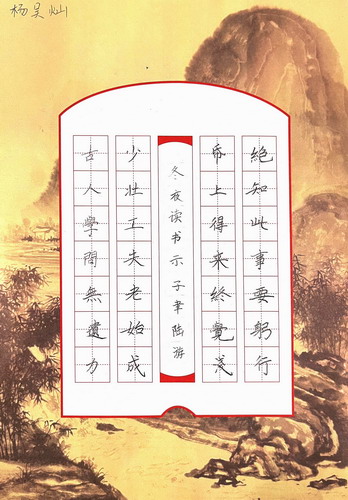 杨昊灿
古人學問無遺力
少壮工夫老始成
冬夜读书示子聿陆游
帋上得来終覺浅
絶知此事要躬行